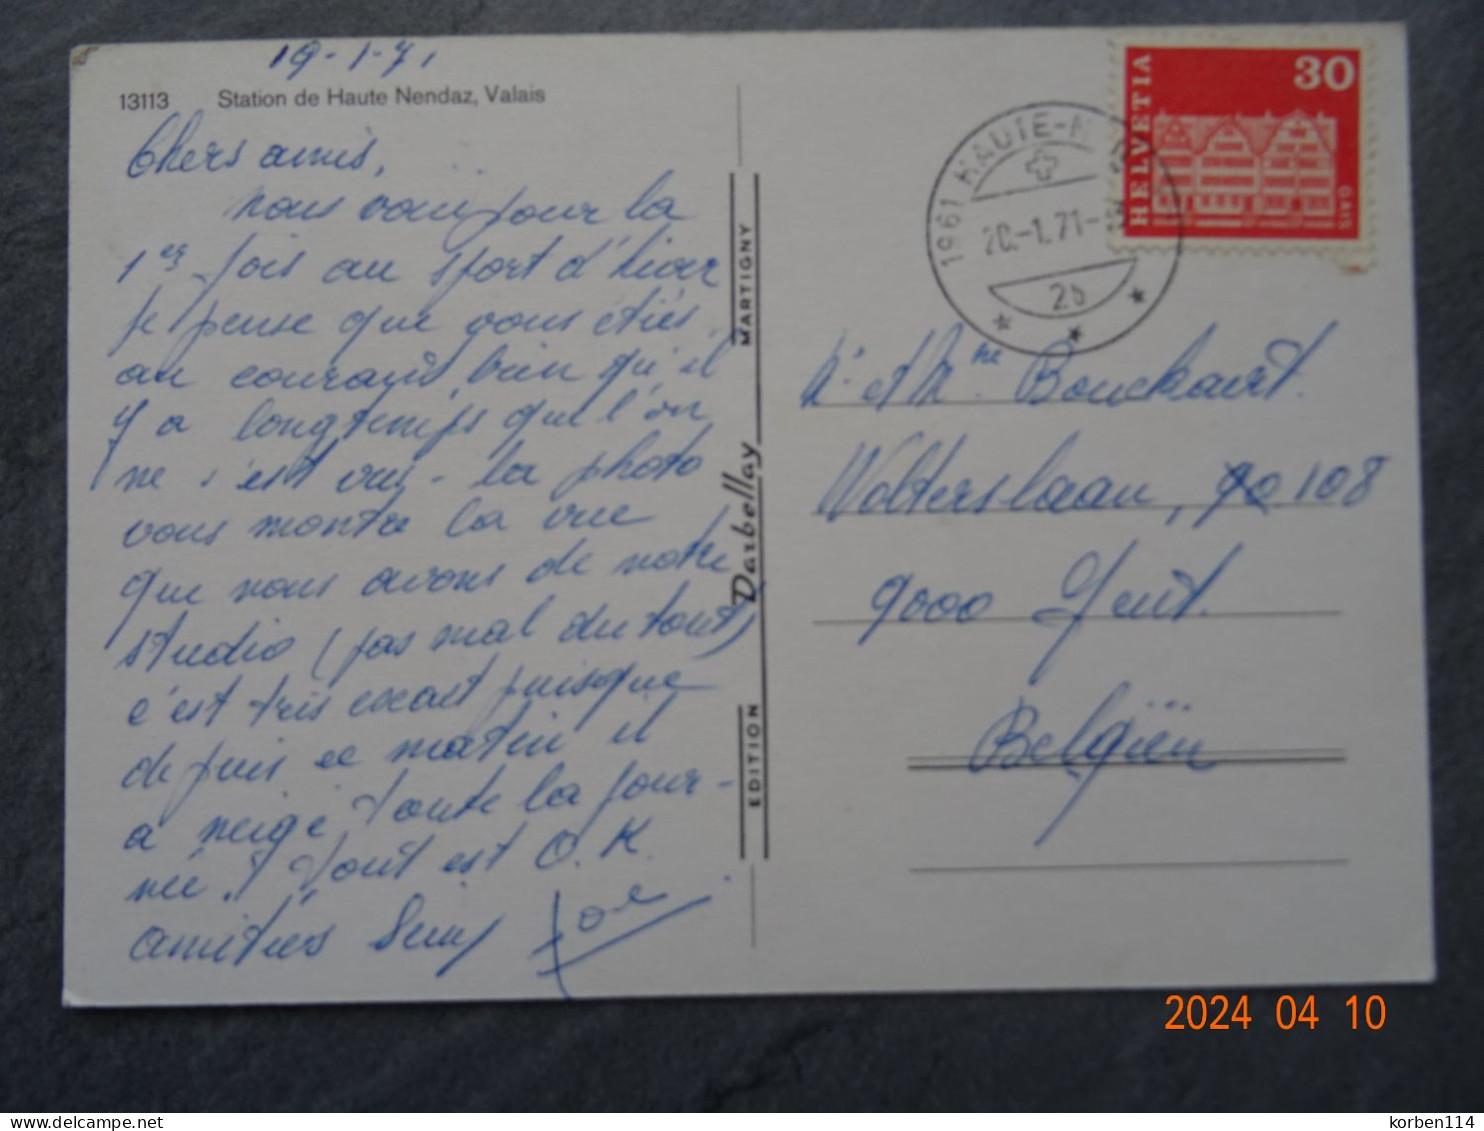 19-1-71
13113 Station de Haute Nendaz, Valais
Chers amis,
nous voici pour la
1er fois au sport d'hiver
je pense que vous etiés
au courant, bien qu'il
y a longtemps que l'on
ne s'est vui - la photo
vous montre la vue
que nous avons de notre
studio (pas mal du tout)
c'est très exact puisque
depuis ce matin il
a neigé toute la jour-
née. Tout est O.K.
amitiés
MARTIGNY
Darbellay
EDITION
HELVETIA
30
GAIS
1961 HAUTE-N
20.-1.71-
2b
M. et Mme. Bouckaert.
Wolterslaan, 108
9000 Gent.
Belgiën
2024 04 10
delcampe.net
korben114